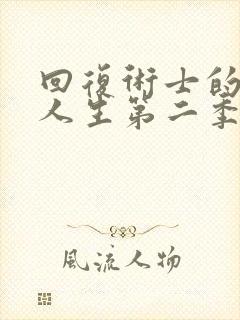 回復術士的
人生第二季
風流人物